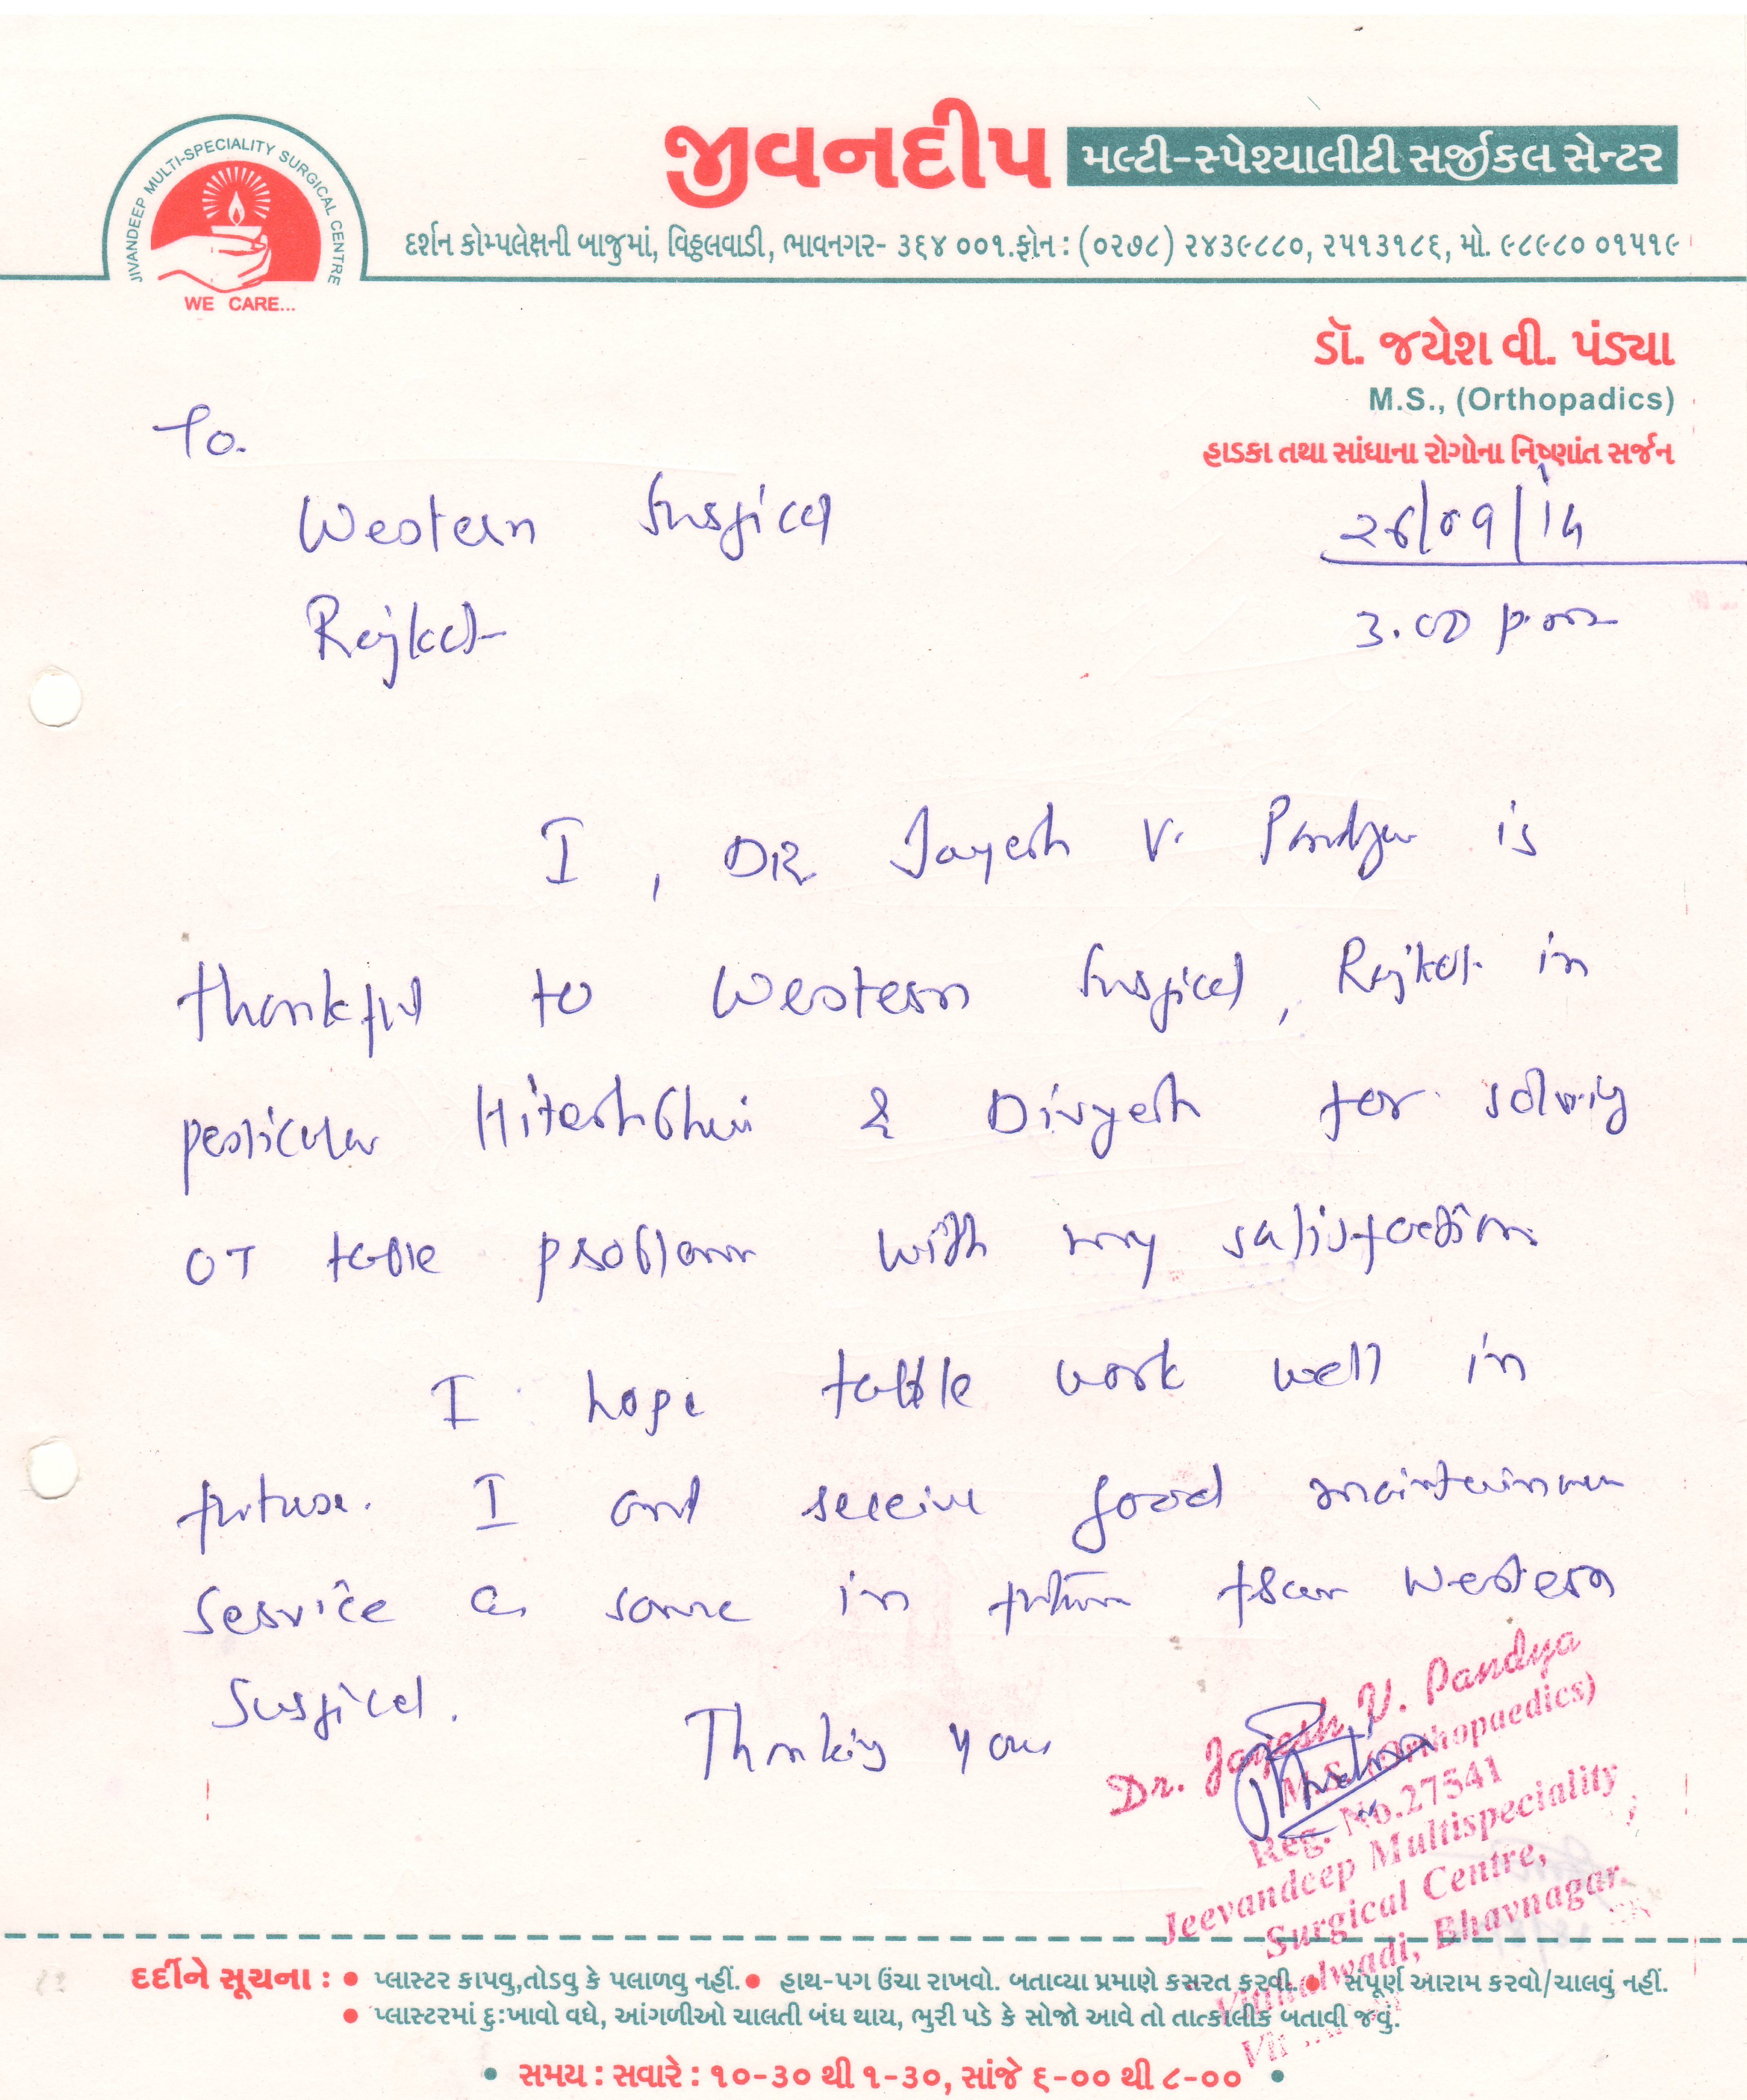 JIVANDEEP MULTI-SPECIALITY SURGICAL CENTRE
WE CARE...
જીવનદીપ મલ્ટી-સ્પેશ્યાલીટી સર્જીકલ સેન્ટર
દર્શન કોમ્પલેક્ષની બાજુમાં, વિઠ્ઠલવાડી, ભાવનગર- ૩૬૪ ૦૦૧.ફોન : (૦૨૭૮) ૨૪૩૯૮૮૦, ૨૫૧૩૧૮૬, મો. ૯૮૯૮૦ ૦૧૫૧૯
ડૉ. જયેશ વી. પંડ્યા
M.S., (Orthopadics)
હાડકા તથા સાંધાના રોગોના નિષ્ણાંત સર્જન
To.
Western Surgical
Rajkot
3.00 p.m
I, DR Jayesh V. Pandya is
thankful to Western Surgical, Rajkot in
perticular Hiteshbhai & Divyesh for solving
OT table problem with my satisfaction
I hope table work well in
future. I and receive good maintainance
service as same in future from Western
Surgical.
Thanking you
Dr. Jayesh V. Pandya
M.S. (Orthopaedics)
Reg. No.27541
Jeevandeep Multispeciality
Surgical Centre,
Vithalwadi, Bhavnagar.
દર્દીને સૂચના : • પ્લાસ્ટર કાપવુ,તોડવુ કે પલાળવુ નહીં. • હાથ-પગ ઉંચા રાખવો. બતાવ્યા પ્રમાણે કસરત કરવી. • સંપૂર્ણ આરામ કરવો/ચાલવું નહીં.
• પ્લાસ્ટરમાં દુઃખાવો વધે, આંગળીઓ ચાલતી બંધ થાય, ભુરી પડે કે સોજો આવે તો તાત્કાલીક બતાવી જવું.
• સમય : સવારે : ૧૦-૩૦ થી ૧-૩૦, સાંજે ૬-૦૦ થી ૮-૦૦ •